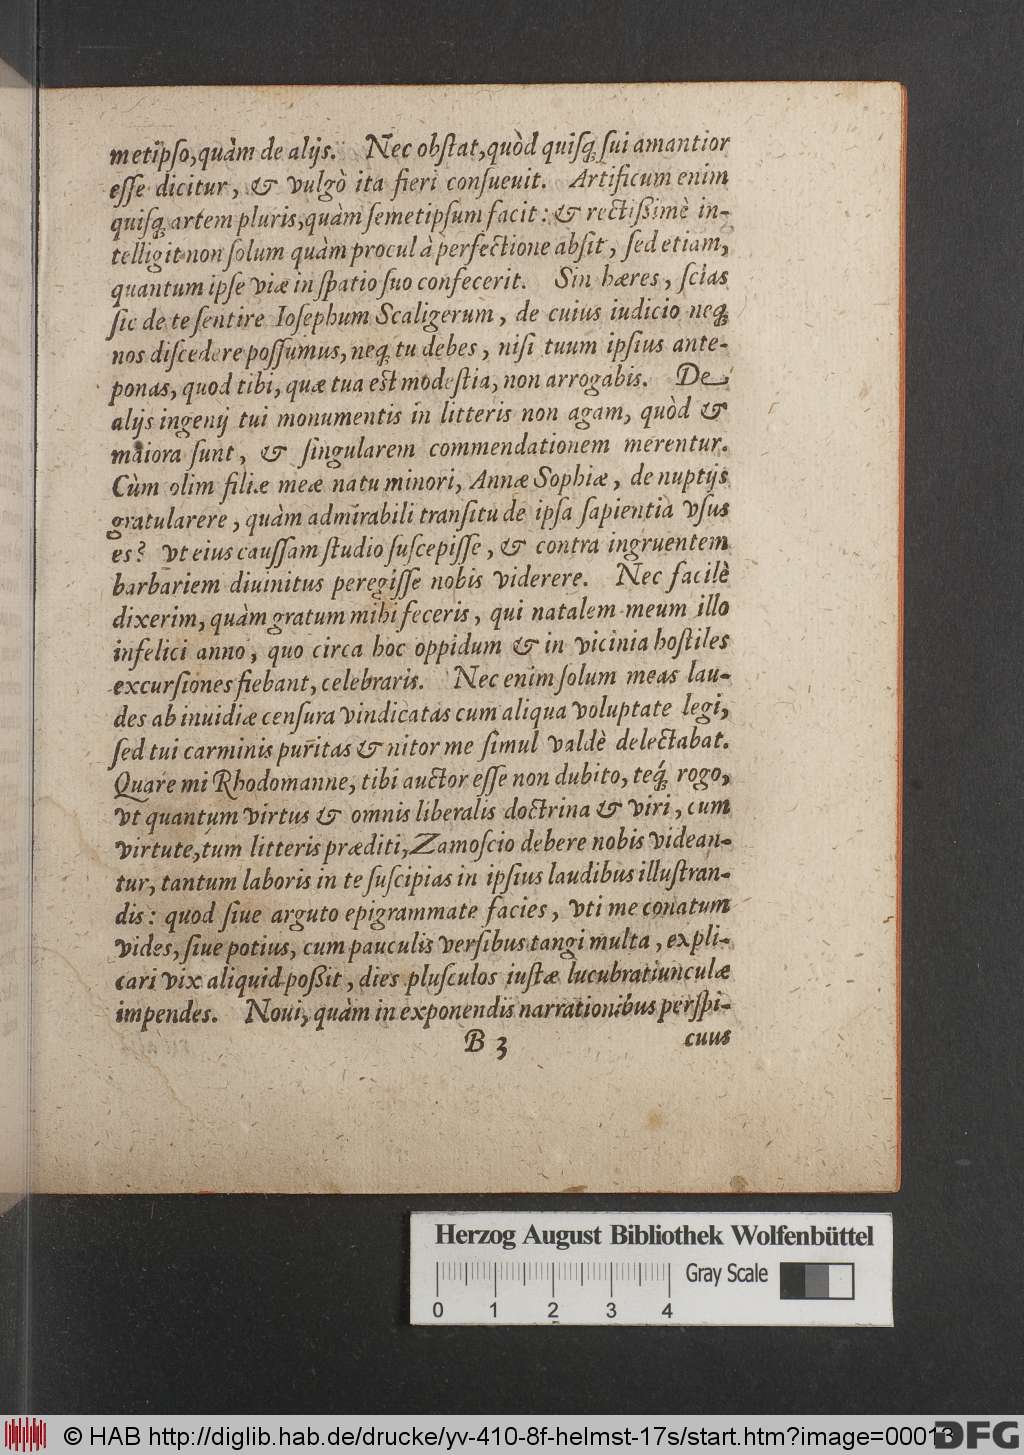 metipso, quàm de alijs. Nec obstat, quòd quisq; sui amantior
esse dicitur, & vulgò ita fieri consueuit. Artificum enim
quisq; artem pluris, quàm semetipsum facit: & rectißimè in-
telligit non solum quàm procul à perfectione absit, sed etiam,
quantum ipse viæ in spatio suo confecerit. Sin hæres, scias
sic de te sentire Iosephum Scaligerum, de cuius iudicio neq;
nos discedere possumus, neq; tu debes, nisi tuum ipsius ante-
ponas, quod tibi, quæ tua est modestia, non arrogabis. De
alijs ingenij tui monumentis in litteris non agam, quòd &
maiora sunt, & singularem commendationem merentur.
Cùm olim filiæ meæ natu minori, Annæ Sophiæ, de nuptijs
gratularere, quàm admirabili transitu de ipsa sapientia vsus
es? vt eius caussam studio suscepisse, & contra ingruentem
barbariem diuinitus peregisse nobis viderere. Nec facilè
dixerim, quàm gratum mihi feceris, qui natalem meum illo
infelici anno, quo circa hoc oppidum & in vicinia hostiles
excursiones fiebant, celebraris. Nec enim solum meas lau-
des ab inuidiæ censura vindicatas cum aliqua voluptate legi,
sed tui carminis puritas & nitor me simul valdè delectabat.
Quare mi Rhodomanne, tibi auctor esse non dubito, teq́; rogo,
vt quantum virtus & omnis liberalis doctrina & viri, cum
virtute, tum litteris præditi, Zamoscio debere nobis videan-
tur, tantum laboris in te suscipias in ipsius laudibus illustran-
dis: quod siue arguto epigrammate facies, vti me conatum
vides, siue potius, cum pauculis versibus tangi multa, expli-
cari vix aliquid poßit, dies plusculos iustæ lucubratiunculæ
impendes. Noui, quàm in exponendis narrationibus perspi-
B 3 cuus
Herzog August Bibliothek Wolfenbüttel
Gray Scale
0 1 2 3 4
© HAB http://diglib.hab.de/drucke/yv-410-8f-helmst-17s/start.htm?image=00013
DFG